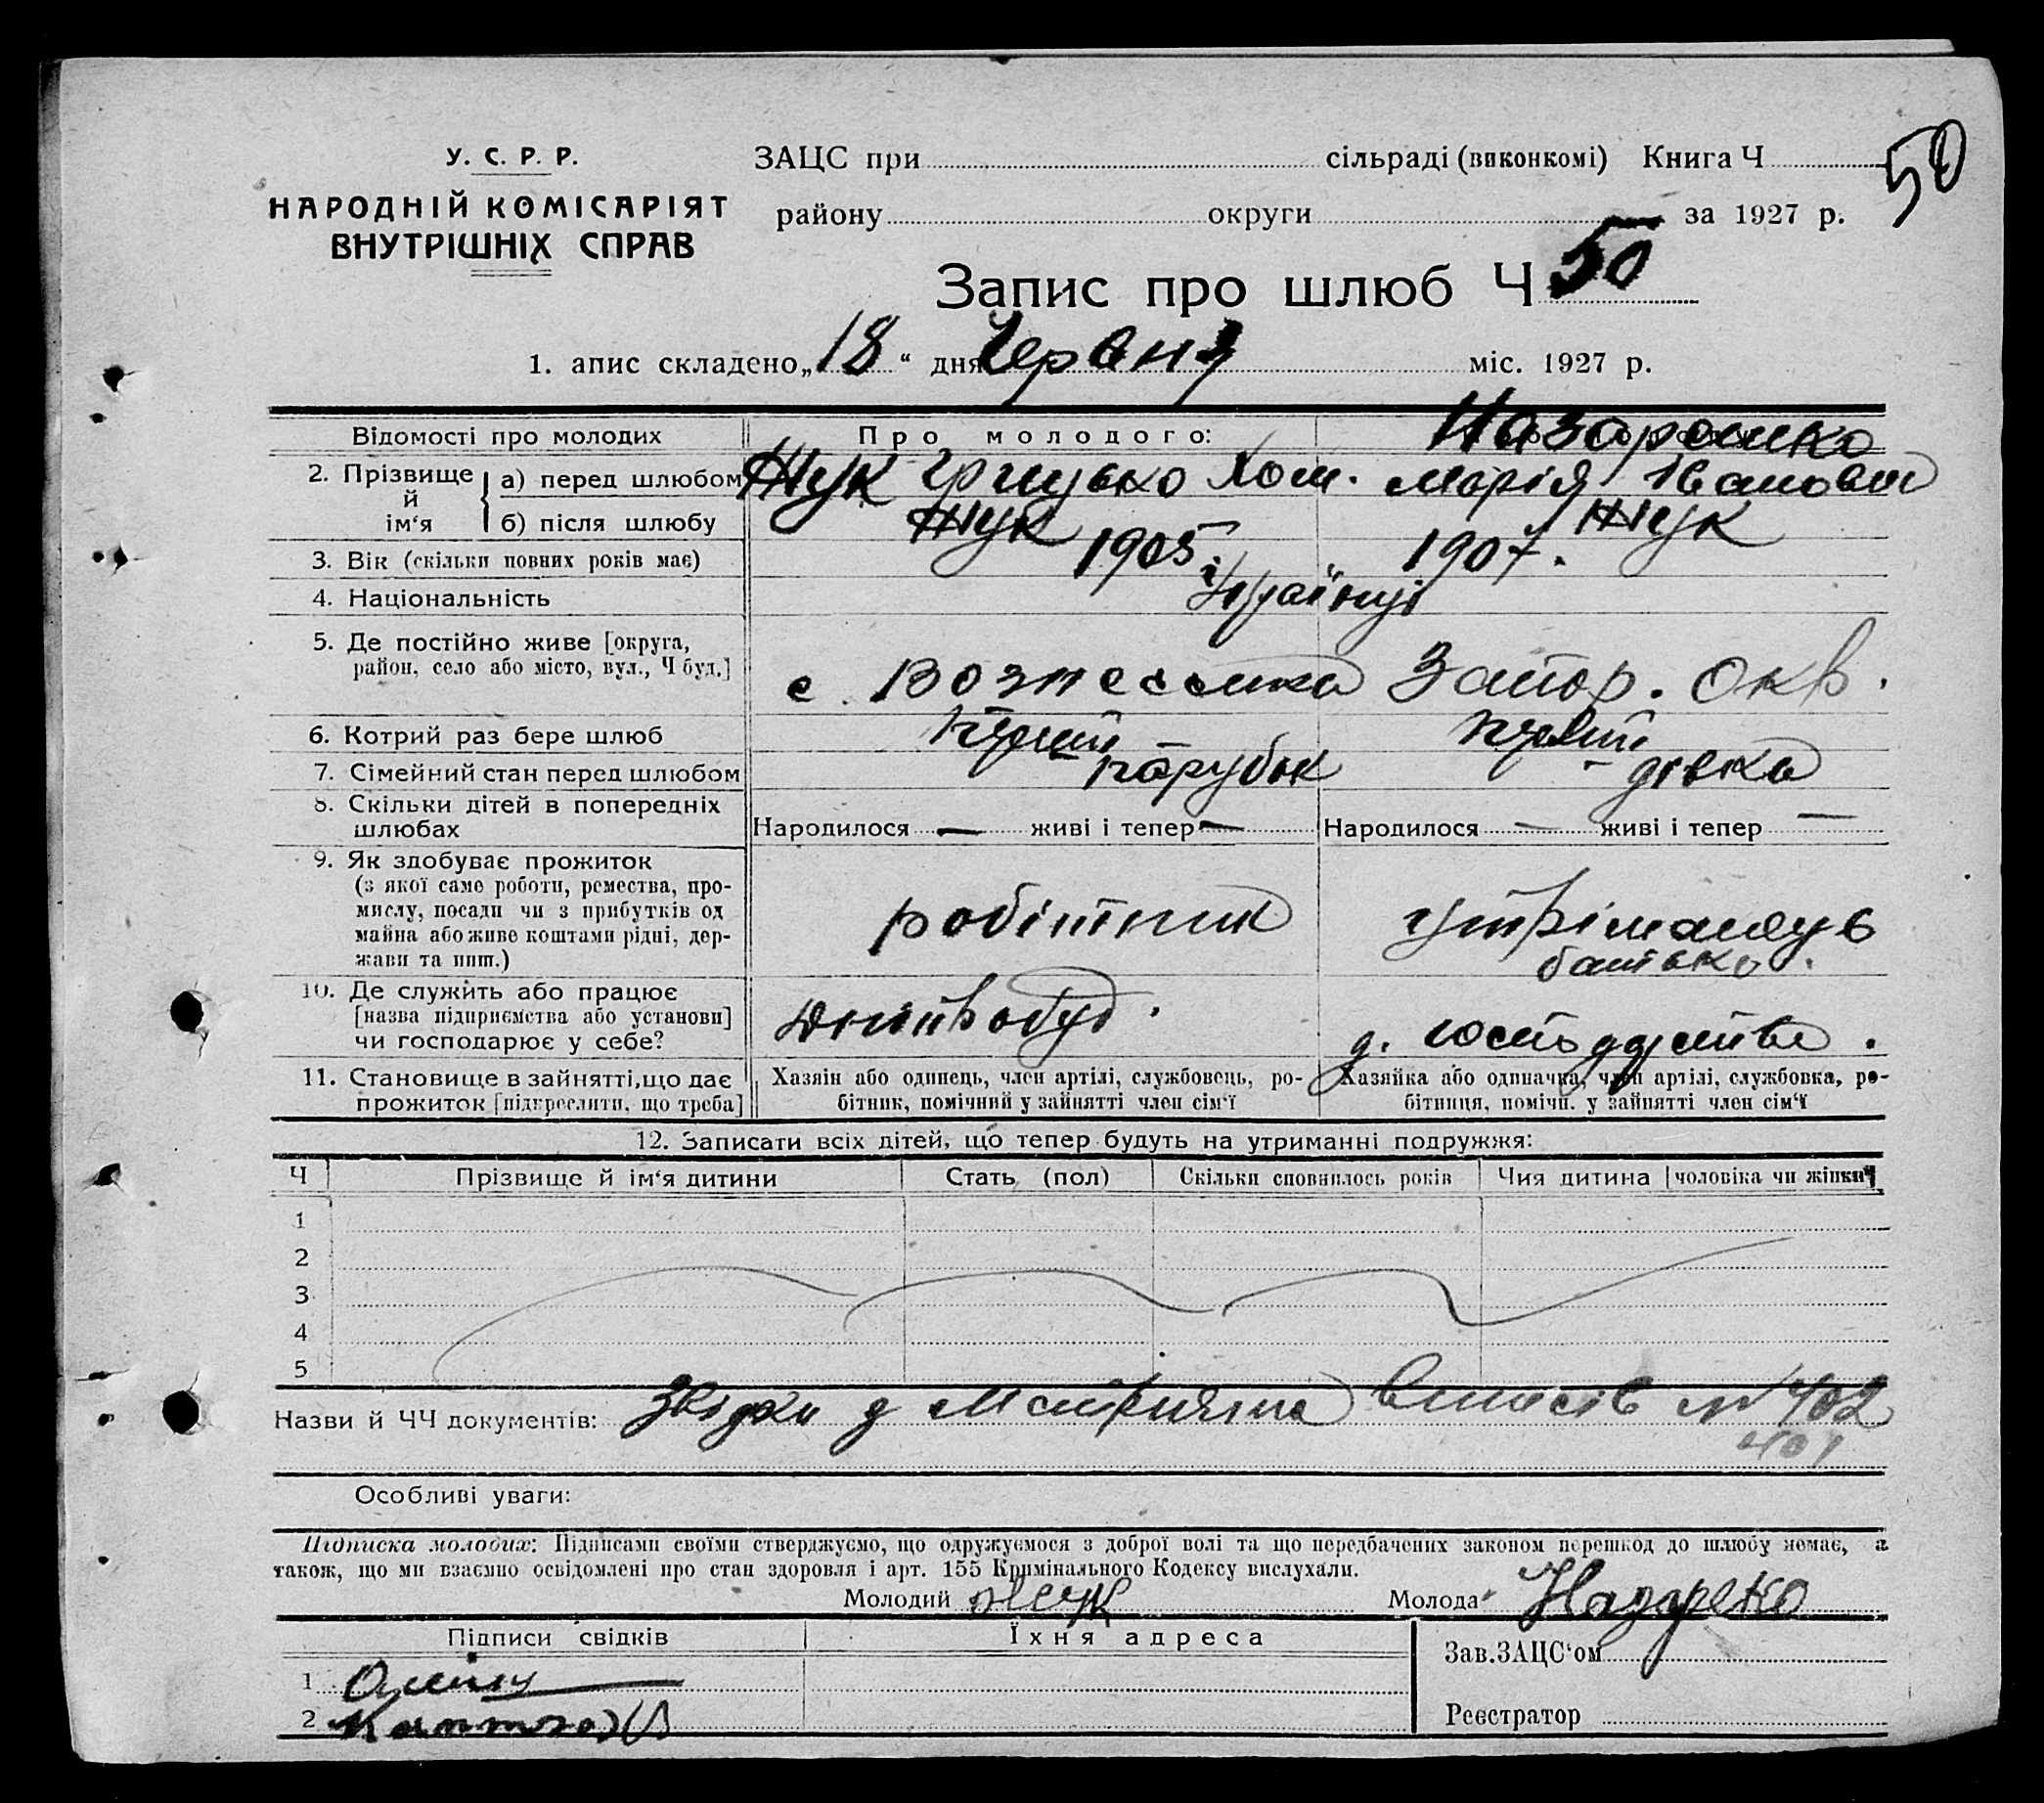 У. С. Р. Р.
НАРОДНІЙ КОМІСАРІЯТ
ВНУТРІШНІХ СПРАВ
ЗАЦС при сільраді (виконкомі) Книга Ч 50
району округи за 1927 р.
Запис про шлюб Ч 50
1. апис складено „18“ дня Червня міс. 1927 р.
Відомості про молодих
Про молодого:
Назаренко
2. Прізвище й ім‘я
а) перед шлюбом Жук Грицько Хом. Марія Івановна
б) після шлюбу Жук Жук
3. Вік (скільки повних років має) 1905 1907.
4. Національність Українці
5. Де постійно живе [округа,
район, село або місто, вул., Ч буд.] с. Вознесенка Запор. Окр.
6. Котрий раз бере шлюб перший перший
7. Сімейний стан перед шлюбом парубок дівка
8. Скільки дітей в попередніх
шлюбах Народилося — живі і тепер — Народилося — живі і тепер —
9. Як здобуває прожиток
(з якої саме роботи, ремества, про-
мислу, посади чи з прибутків од
майна або живе коштами рідні, дер-
жави та инш.)
робітник
батька.
10. Де служить або працює
[назва підприємства або установи]
чи господарює у себе?
Дніпробуд.
д.
11. Становище в зайнятті, що дає
прожиток [підкреслити, що треба]
Хазяїн або одинець, член артілі, службовець, ро-
бітник, помічний у зайнятті член сім‘ї
Хазяйка або одиначка, член артілі, службовка, ро-
бітниця, помічн. у зайнятті член сім‘ї
12. Записати всіх дітей, що тепер будуть на утриманні подружжя:
Ч Прізвище й ім‘я дитини Стать (пол) Скільки сповнилось років Чия дитина [чоловіка чи жінки]
1
2
3
4
5
Назви й ЧЧ документів: № 402
401
Особливі уваги:
Підписка молодих: Підписами своїми стверджуємо, що одружуємося з доброї волі та що передбачених законом перешкод до шлюбу немає, а
також, що ми взаємно освідомлені про стан здоровля і арт. 155 Кримінального Кодексу вислухали.
Молодий Жук Молода Назаренко
Підписи свідків Їхня адреса
Зав. ЗАЦС‘ом
1
2
Реєстратор